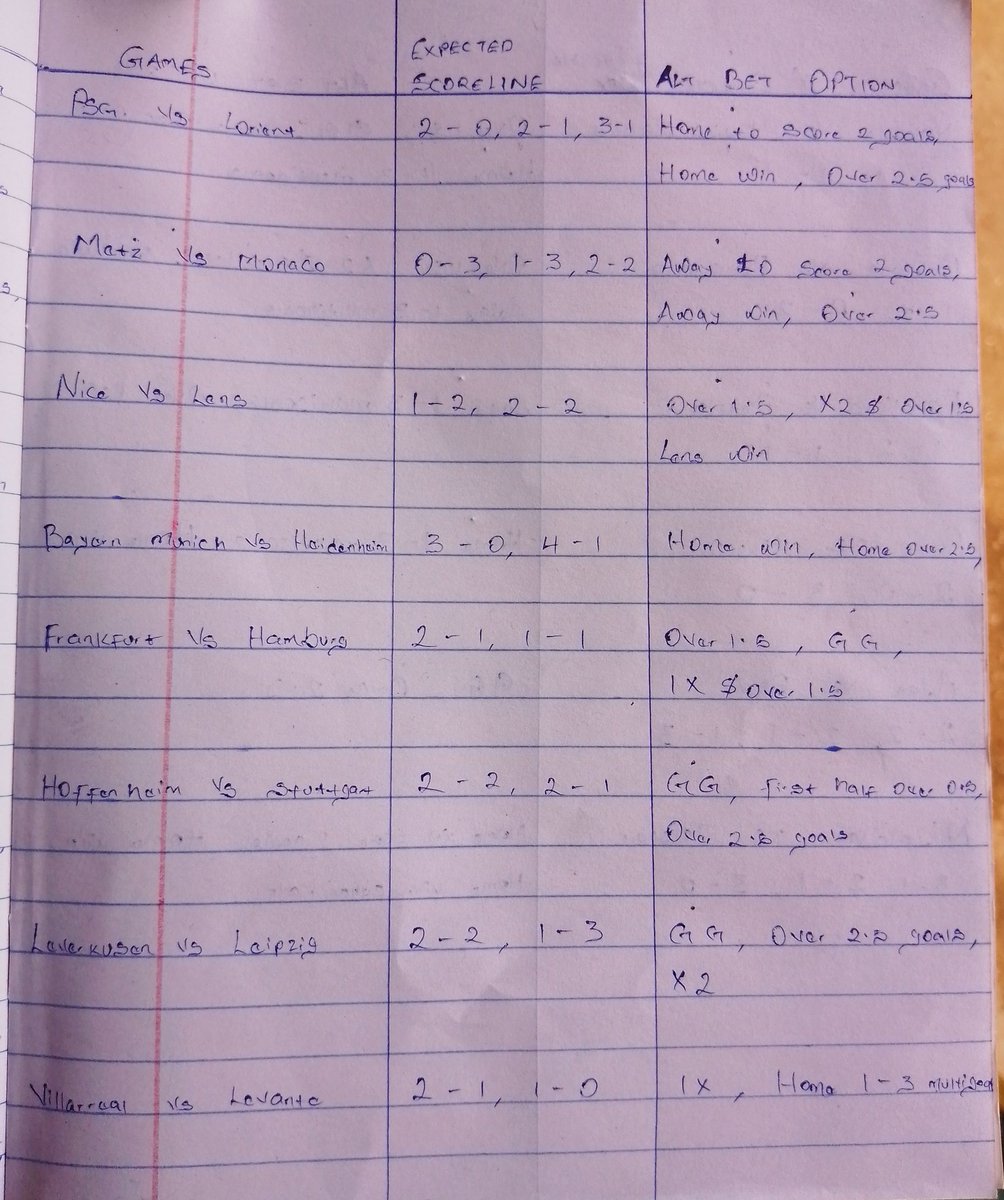 GAMES EXPECTED SCORELINE ALT BET OPTION
PSG. Vs Lorient 2 - 0, 2 - 1, 3-1 Home to Score 2 goals,
Home win, Over 2.5 goals
Metz Vs Monaco 0 - 3, 1 - 3, 2 - 2 Away to Score 2 goals,
Away win, Over 2.5
Nice Vs Lens 1 - 2, 2 - 2 Over 1.5, X2 $ Over 1.5
Lens win
Bayern Munich Vs Heidenheim 3 - 0, 4 - 1 Home win, Home over 2.5,
Frankfurt Vs Hamburg 2 - 1, 1 - 1 Over 1.5, GG,
1X $ Over 1.5
Hoffenheim Vs Stuttgart 2 - 2, 2 - 1 GG, first half over 0.5,
Over 2.5 goals
Leverkusen vs Leipzig 2 - 2, 1 - 3 GG, Over 2.5 goals,
X2
Villarreal vs Levante 2 - 1, 1 - 0 1X, Home 1 - 3 multigoal